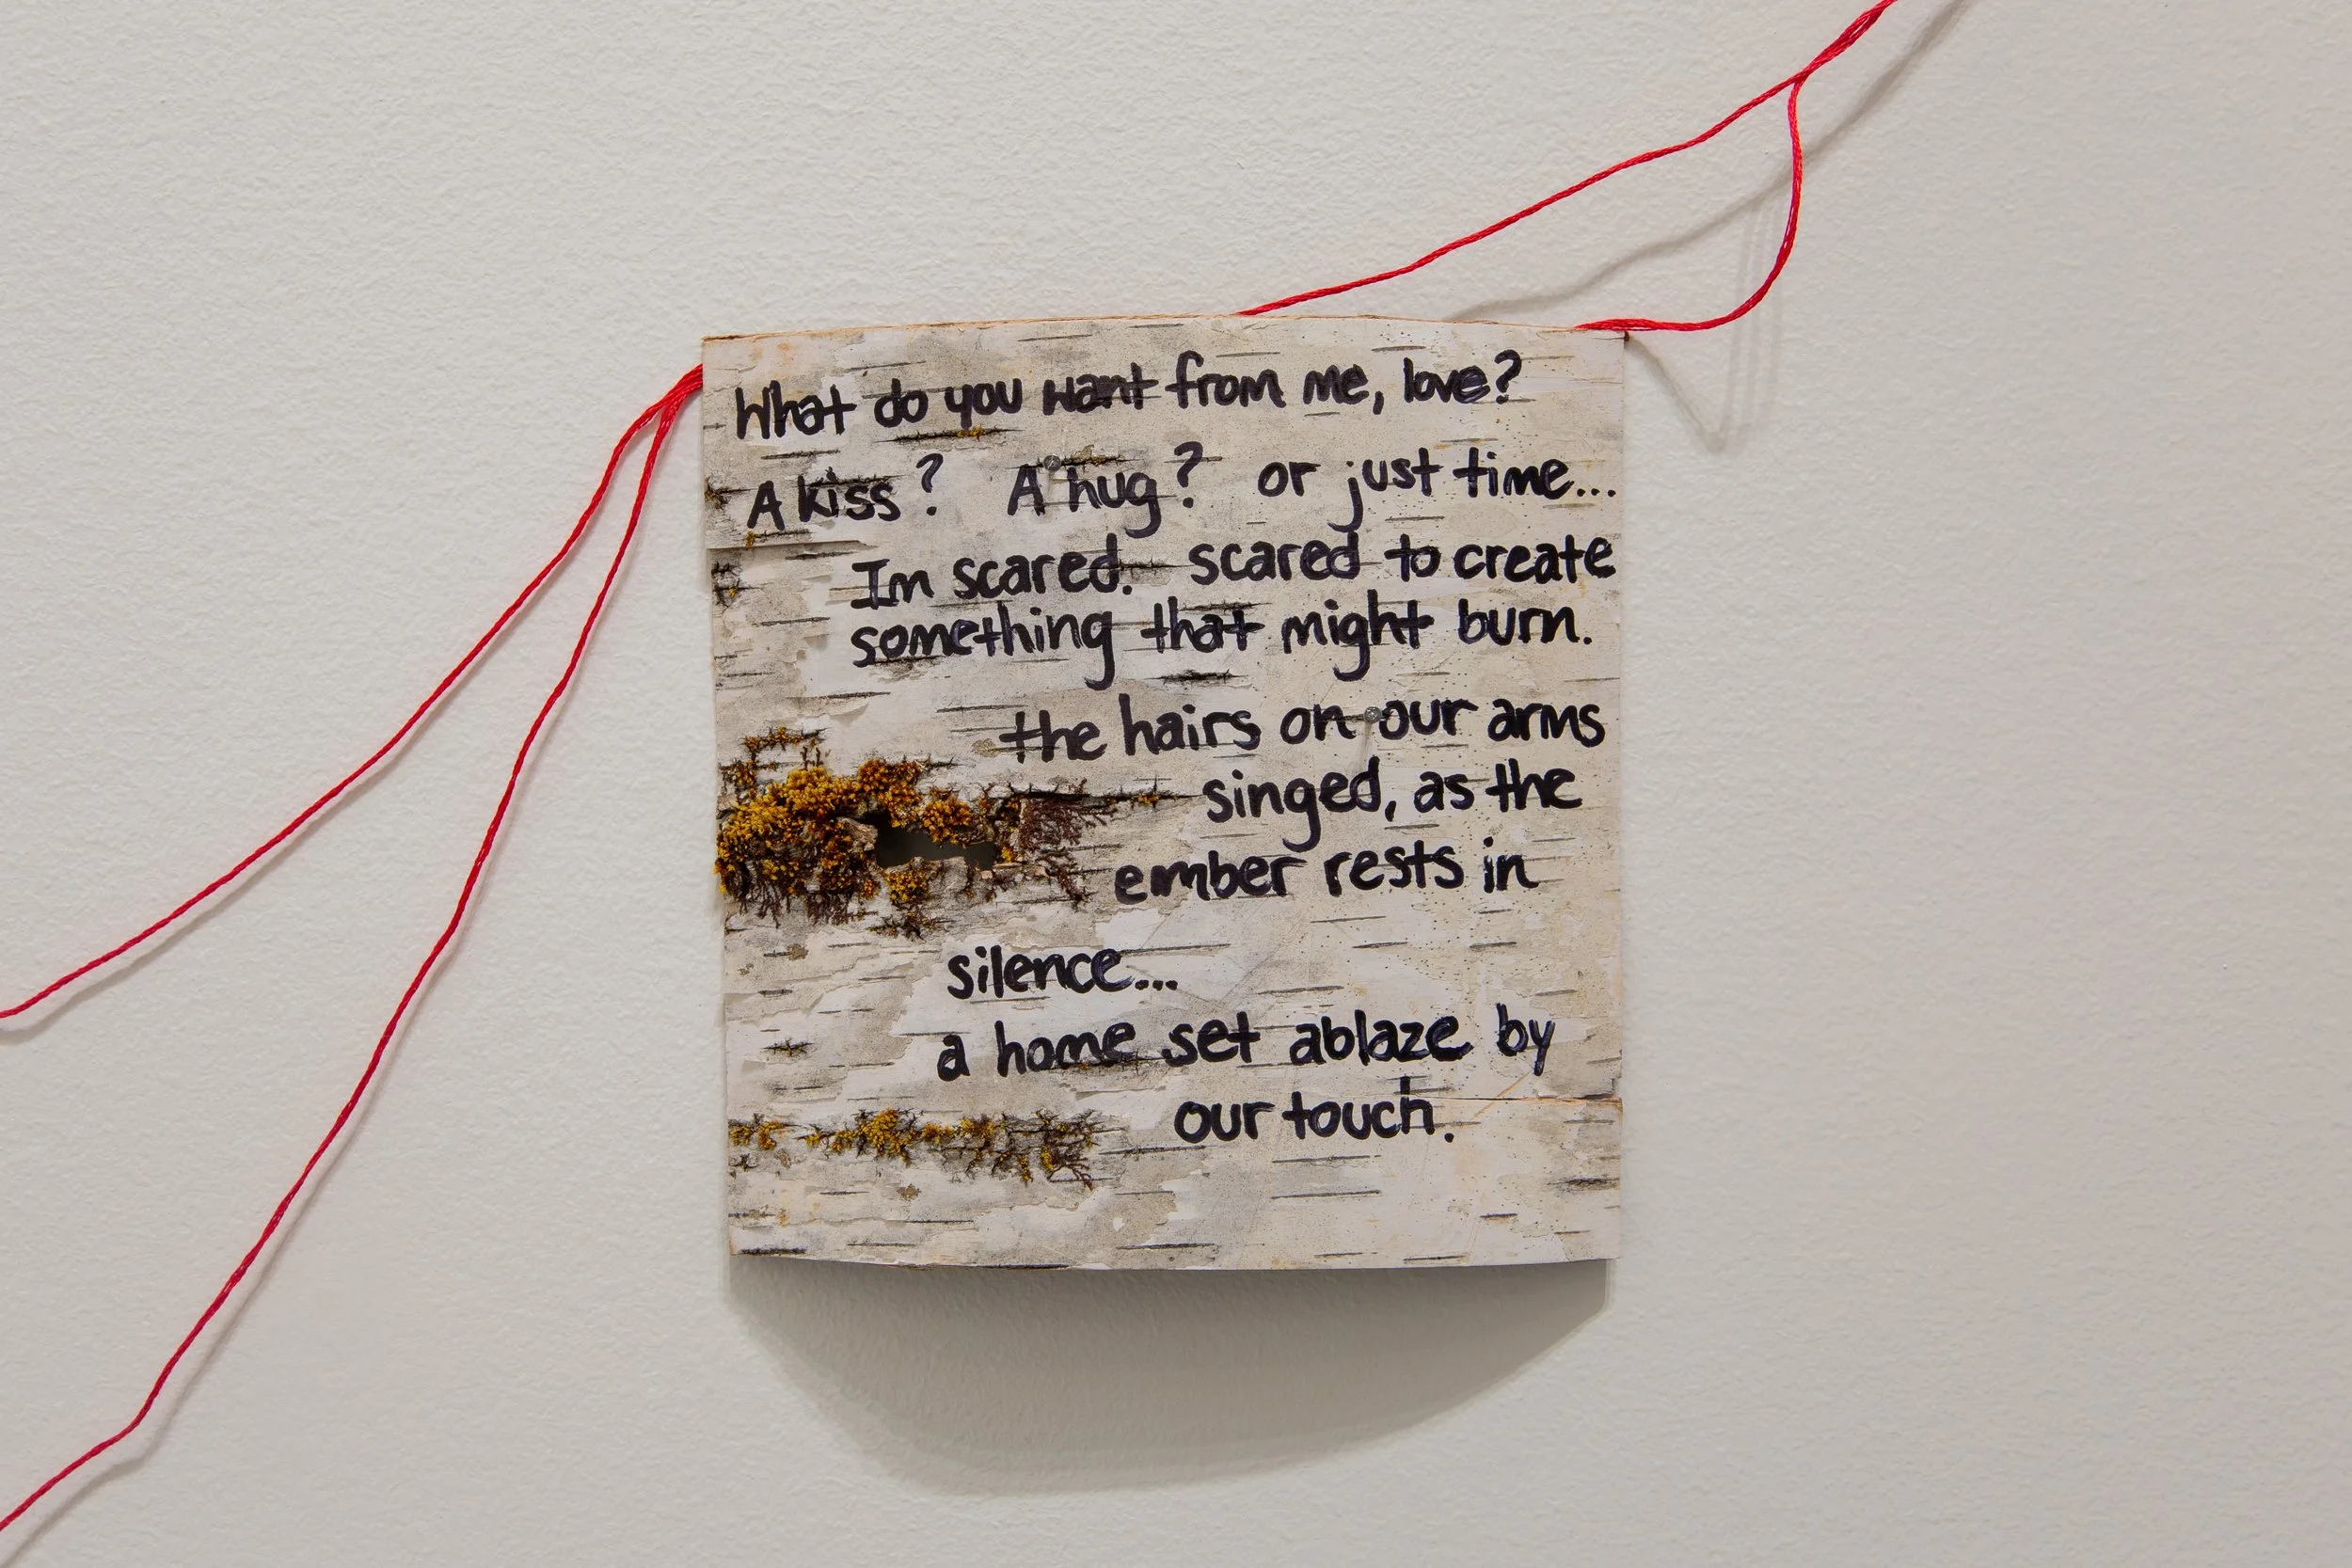 What do you want from me, love?
A kiss? A hug? or just time...
Im scared. scared to create
something that might burn.
the hairs on our arms
singed, as the
ember rests in
silence...
a home set ablaze by
our touch.